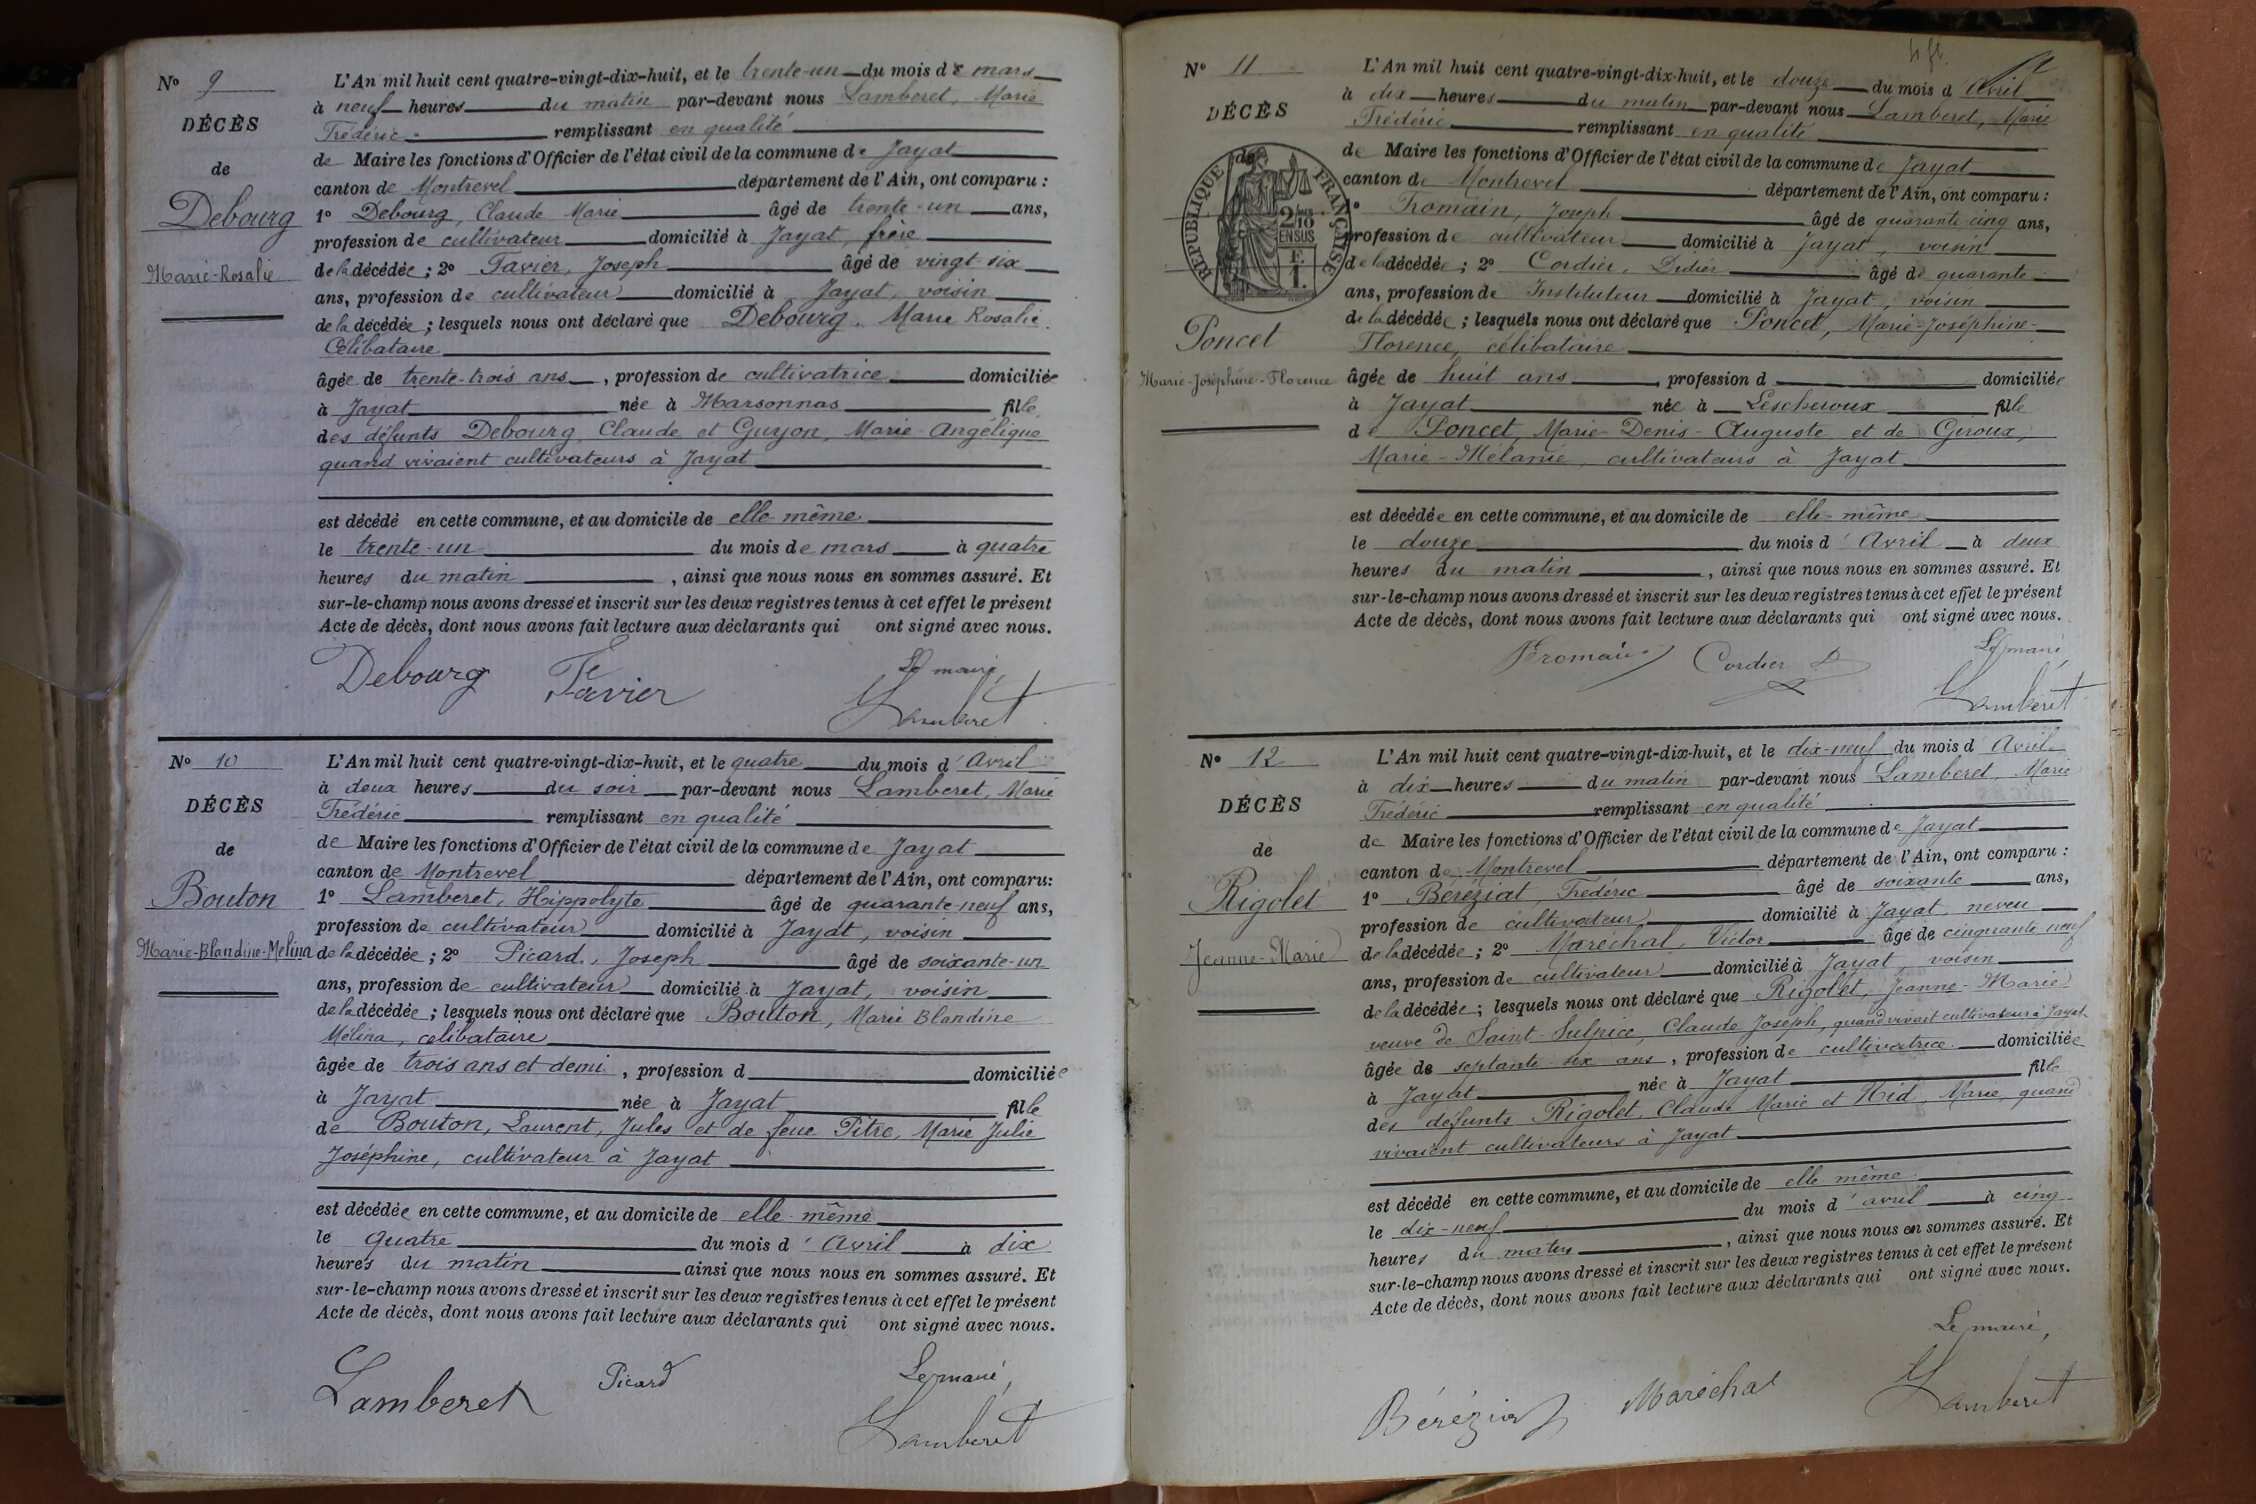 Nº 9
DÉCÈS
de
Debourg
Marie-Rosalie
L'An mil huit cent quatre-vingt-dix-huit, et le trente-un du mois de mars
à neuf heures du matin par-devant nous Lamberet, Marie
Frédéric remplissant en qualité
de Maire les fonctions d'Officier de l'état civil de la commune de Jayat
canton de Montrevel département de l'Ain, ont comparu :
1º Debourg, Claude Marie âgé de trente-un ans,
profession de cultivateur domicilié à Jayat, frère
de la décédée ; 2º Favier, Joseph âgé de vingt six
ans, profession de cultivateur domicilié à Jayat, voisin
de la décédée ; lesquels nous ont déclaré que Debourg, Marie Rosalie
Célibataire
âgée de trente-trois ans, profession de cultivatrice domiciliée
à Jayat née à Marsonnas fille
des défunts Debourg, Claude et Guyon, Marie-Angélique
quand vivaient cultivateurs à Jayat
est décédé en cette commune, et au domicile de elle-même
le trente-un du mois de mars à quatre
heures du matin, ainsi que nous nous en sommes assuré. Et
sur-le-champ nous avons dressé et inscrit sur les deux registres tenus à cet effet le présent
Acte de décès, dont nous avons fait lecture aux déclarants qui ont signé avec nous.
Debourg Favier Le maire,
Lamberet
Nº 10
DÉCÈS
de
Bouton
Marie-Blandine-Melina
L'An mil huit cent quatre-vingt-dix-huit, et le quatre du mois d'Avril
à deux heures du soir par-devant nous Lamberet, Marie
Frédéric remplissant en qualité
de Maire les fonctions d'Officier de l'état civil de la commune de Jayat
canton de Montrevel département de l'Ain, ont comparu:
1º Lamberet, Hippolyte âgé de quarante-neuf ans,
profession de cultivateur domicilié à Jayat, voisin
de la décédée ; 2º Picard, Joseph âgé de soixante-un
ans, profession de cultivateur domicilié à Jayat, voisin
de la décédée ; lesquels nous ont déclaré que Bouton, Marie Blandine
Mélina, célibataire
âgée de trois ans et demi, profession d domiciliée
à Jayat née à Jayat fille
de Bouton, Laurent, Jules et de feue Pitre, Marie Julie
Joséphine, cultivateur à Jayat
est décédée en cette commune, et au domicile de elle-même
le quatre du mois d'Avril à dix
heures du matin ainsi que nous nous en sommes assuré. Et
sur-le-champ nous avons dressé et inscrit sur les deux registres tenus à cet effet le présent
Acte de décès, dont nous avons fait lecture aux déclarants qui ont signé avec nous.
Lamberet Picard Le maire,
Lamberet
Nº 11
DÉCÈS
de
RÉPUBLIQUE FRANÇAISE
2/10
EN SUS
F.
1.
Poncet
Marie-Joséphine-Florence
L'An mil huit cent quatre-vingt-dix-huit, et le douze du mois d Avril
à dix heures du matin par-devant nous Lamberet, Marie
Frédéric remplissant en qualité
de Maire les fonctions d'Officier de l'état civil de la commune de Jayat
canton de Montrevel département de l'Ain, ont comparu :
1º Fromain, Joseph âgé de quarante-cinq ans,
profession de cultivateur domicilié à Jayat, voisin
de la décédée ; 2º Cordier, Didier âgé de quarante
ans, profession de Instituteur domicilié à Jayat, voisin
de la décédée ; lesquels nous ont déclaré que Poncet, Marie-Joséphine-
Florence, célibataire
âgée de huit ans, profession d domiciliée
à Jayat née à Lescheroux fille
de Poncet, Marie-Denis-Auguste et de Giroux,
Marie-Mélanie, cultivateurs à Jayat
est décédée en cette commune, et au domicile de elle-même
le douze du mois d'Avril à deux
heures du matin, ainsi que nous nous en sommes assuré. Et
sur-le-champ nous avons dressé et inscrit sur les deux registres tenus à cet effet le présent
Acte de décès, dont nous avons fait lecture aux déclarants qui ont signé avec nous.
Fromain Cordier D Le maire
Lamberet
Nº 12
DÉCÈS
de
Rigolet
Jeanne-Marie
L'An mil huit cent quatre-vingt-dix-huit, et le dix-neuf du mois d'Avril
à dix heures du matin par-devant nous Lamberet, Marie
Frédéric remplissant en qualité
de Maire les fonctions d'Officier de l'état civil de la commune de Jayat
canton de Montrevel département de l'Ain, ont comparu :
1º Béréziat, Frédéric âgé de soixante ans,
profession de cultivateur domicilié à Jayat, neveu
de la décédée ; 2º Maréchal, Victor âgé de cinquante neuf
ans, profession de cultivateur domicilié à Jayat, voisin
de la décédée ; lesquels nous ont déclaré que Rigolet, Jeanne-Marie
veuve de Saint-Sulpice, Claude Joseph, quand vivait cultivateur à Jayat
âgée de septante-six ans, profession de cultivatrice domiciliée
à Jayat née à Jayat fille
des défunts Rigolet, Claude Marie et Nid, Marie, quand
vivaient cultivateurs à Jayat
est décédé en cette commune, et au domicile de elle même
le dix-neuf du mois d'avril à cinq
heures du matin, ainsi que nous nous en sommes assuré. Et
sur-le-champ nous avons dressé et inscrit sur les deux registres tenus à cet effet le présent
Acte de décès, dont nous avons fait lecture aux déclarants qui ont signé avec nous.
Le maire,
Béréziat Maréchal Lamberet